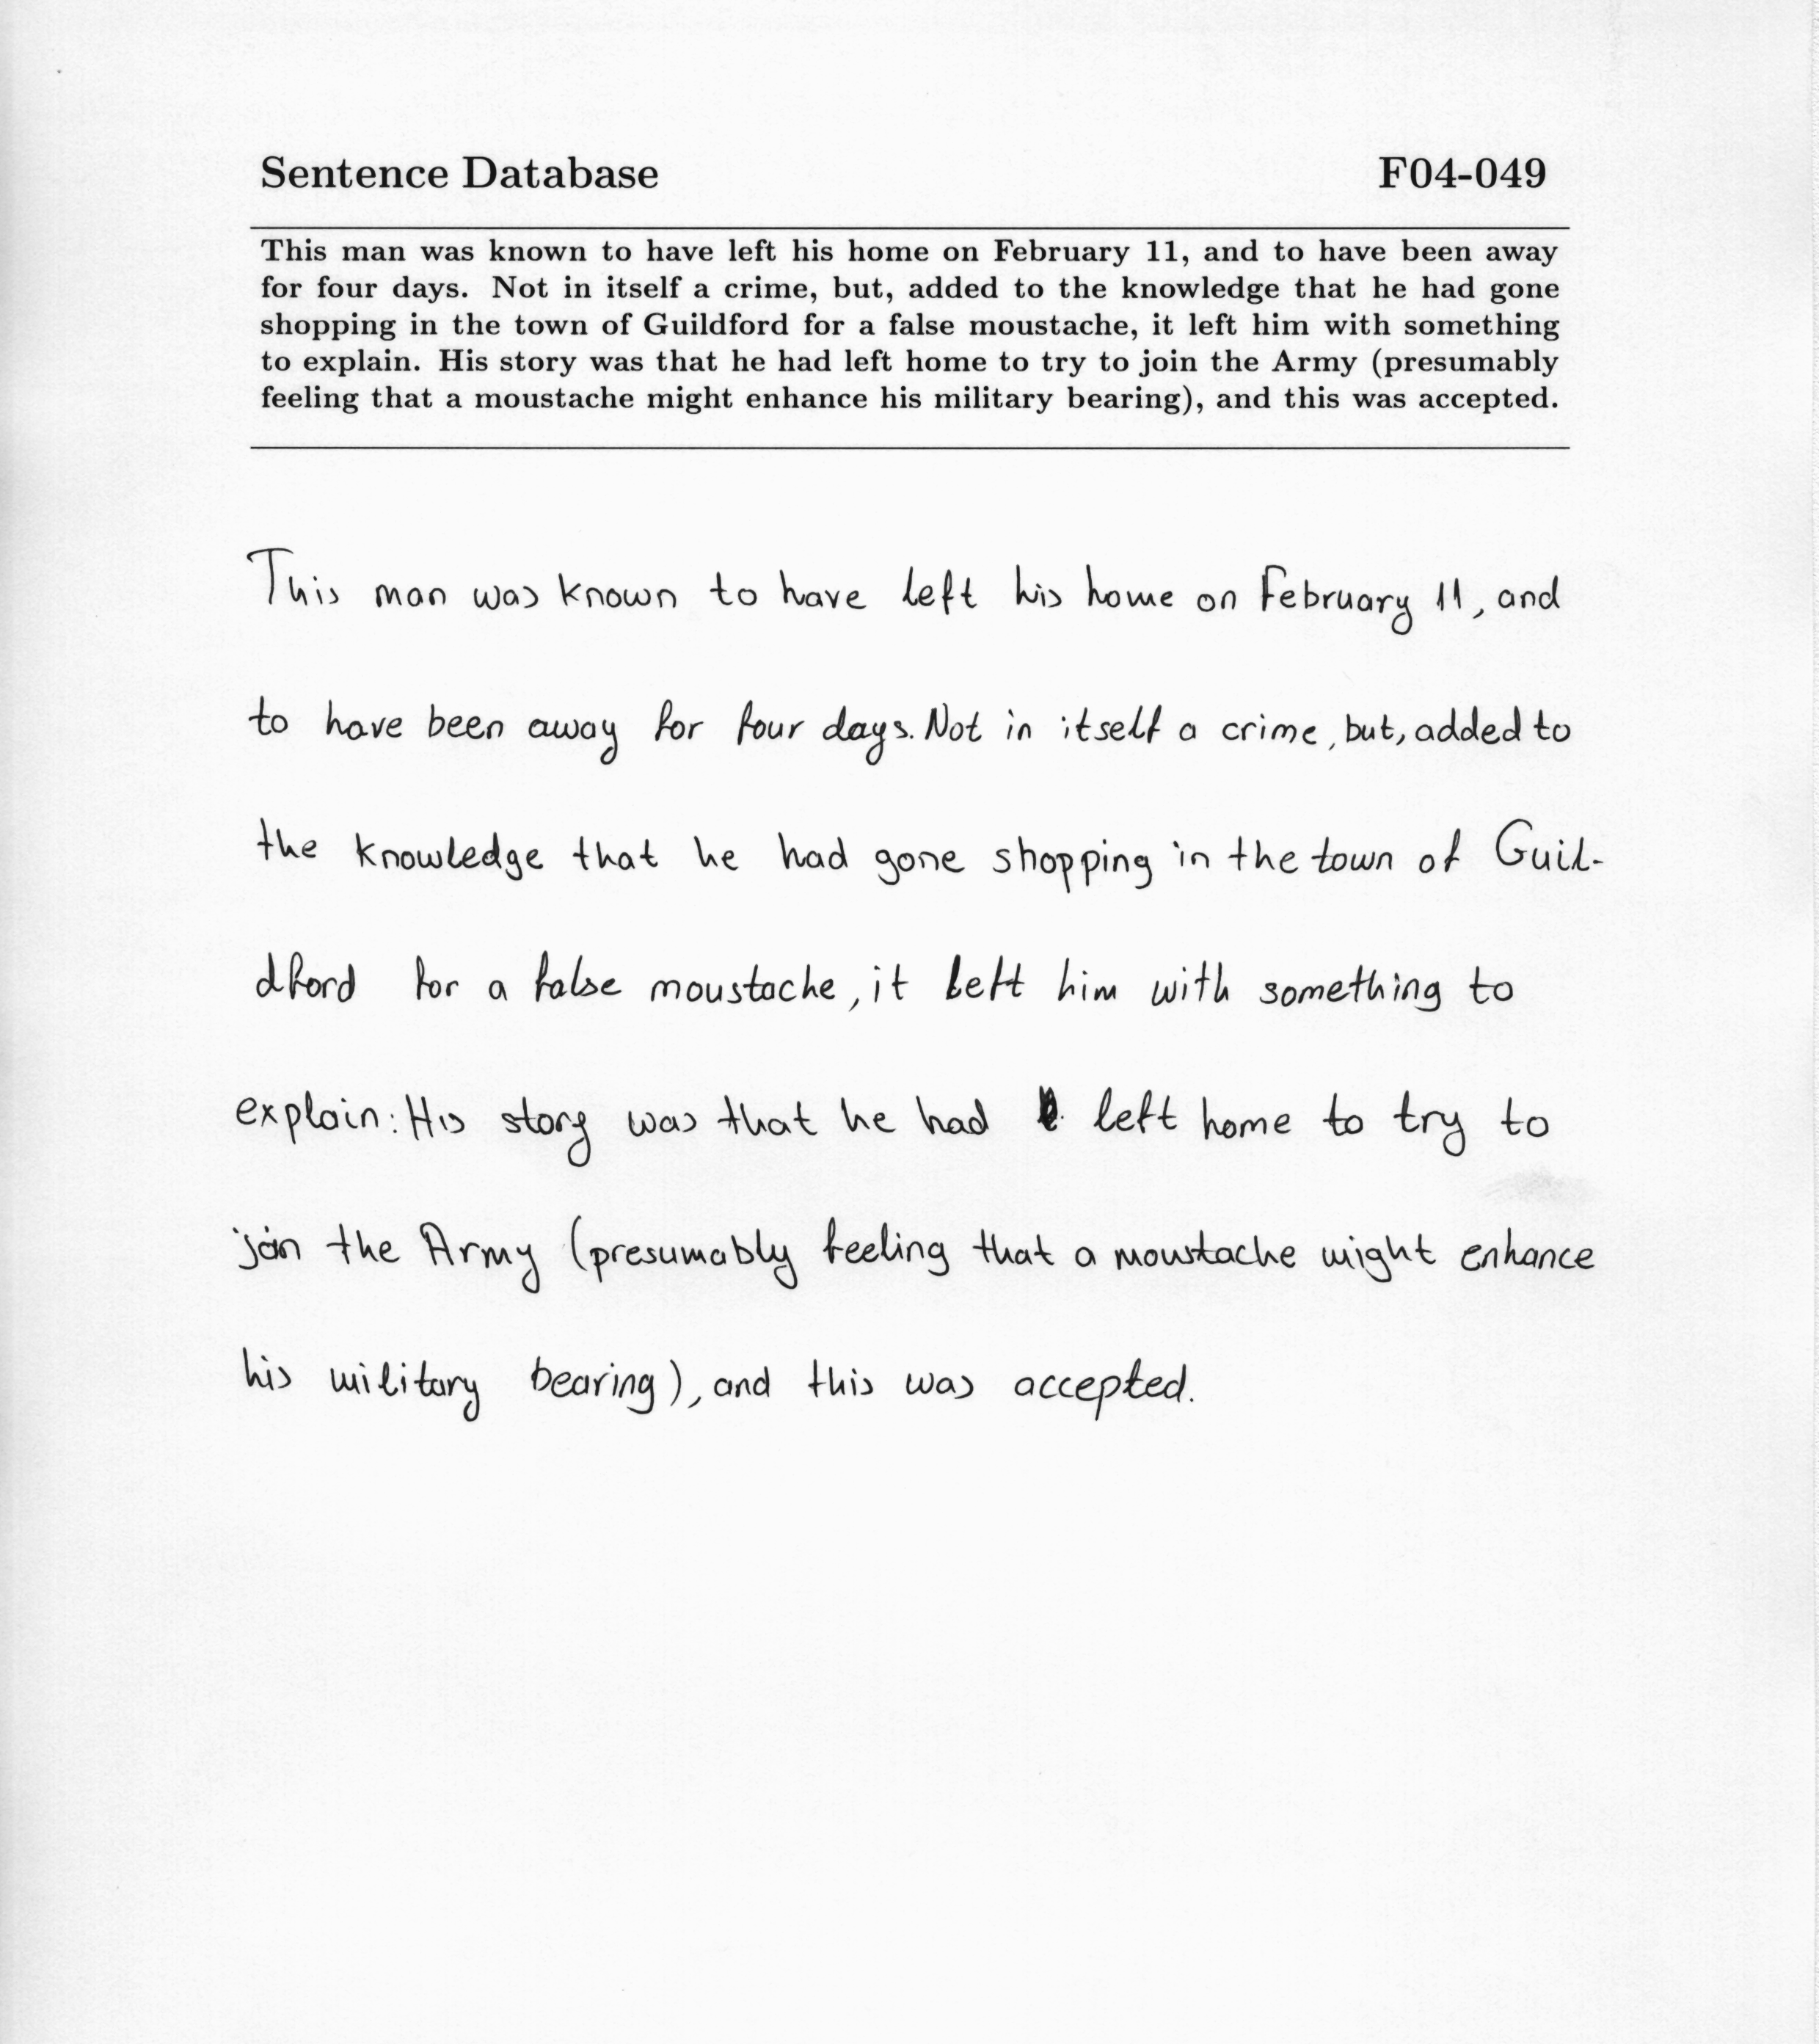 Sentence Database F04-049
This man was known to have left his home on February 11, and to have been away
for four days. Not in itself a crime, but, added to the knowledge that he had gone
shopping in the town of Guildford for a false moustache, it left him with something
to explain. His story was that he had left home to try to join the Army (presumably
feeling that a moustache might enhance his military bearing), and this was accepted.
This man was known to have left his home on February 11, and
to have been away for four days. Not in itself a crime, but, added to
the knowledge that he had gone shopping in the town of Guil-
dford for a false moustache, it left him with something to
explain: His story was that he had left home to try to
join the Army (presumably feeling that a moustache might enhance
his military bearing), and this was accepted.